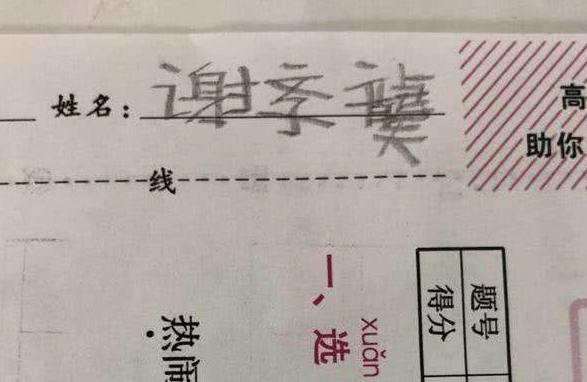 姓名：谢予龑
线
高
助你
题号
得分
xuǎn
一、选
热闹